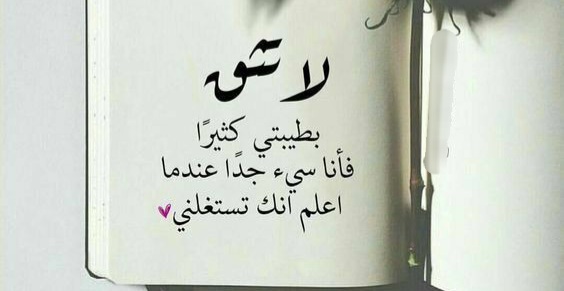 لا تثق
بطيبتي كثيرًا
فأنا سيء جدًا عندما
اعلم انك تستغلني